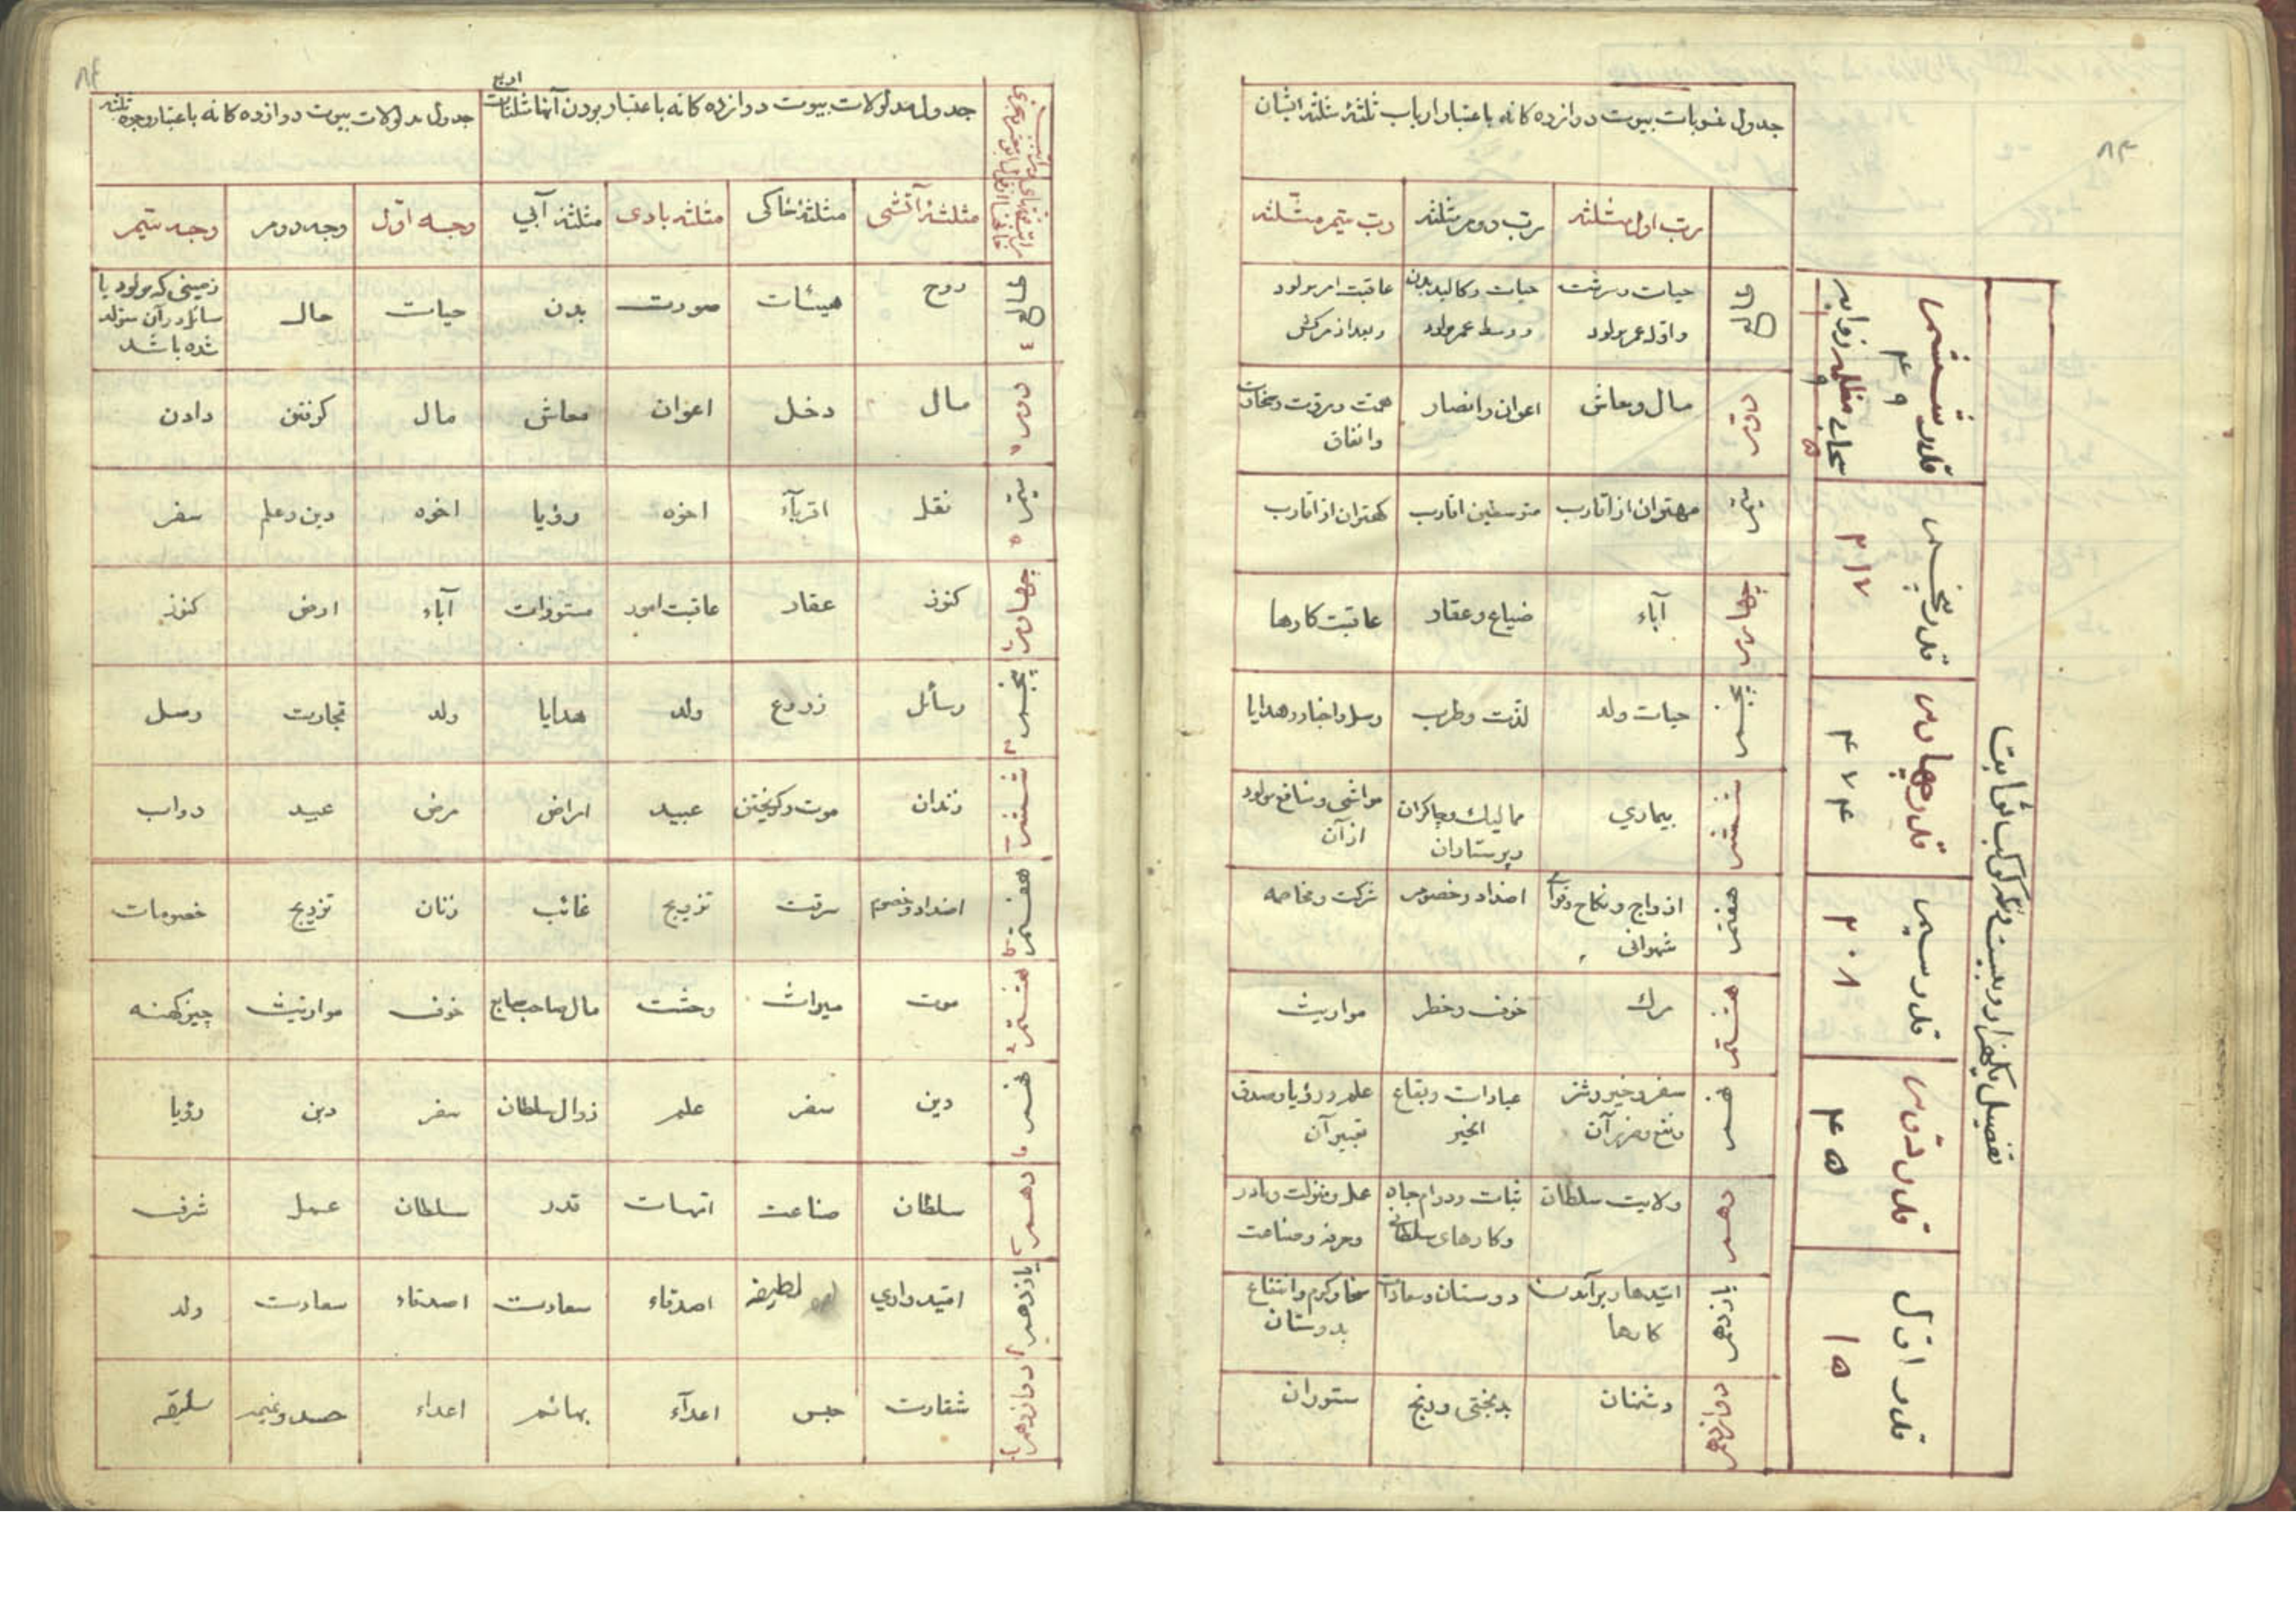 ۸۳
جدول منسوبات بیوت دوازده کانه باعتبار ارباب ثلثهٔ مثلثه ایشان
رب اول مثلثه رب دوم مثلثه رب سیم مثلثه
طالع حیات و سرشت حیات و کالبد بدن عاقبت امر مولود
و اول عمر مولود و وسط عمر مولود و بعد از مرکش
دوم مال و معاش اعوان و انصار همت و مروت و سخاوت
و انفاق
سیم مهتران از اقارب متوسطین اقارب کهتران از اقارب
چهارم آباء ضیاع و عقار عاقبت کارها
پنجم حیات ولد لذت و طرب رسل و اخبار و هدایا
ششم بیماری ممالیك و چاکران مواشی و منافع مولود
و پرستاران از آن
هفتم ازواج و نکاح و قوای اضداد و خصوم شرکت و مخاصمه
شهوانی
هشتم مرك خوف و خطر مواریث
نهم سفر و خیر و شر عبادات و بقاع علم و رؤیا و صدق
و نفع و ضرر آن الخیر تعبیر آن
دهم ولایت سلطان ثبات و دوام جاه عمل و منزلت و مادر
و کارهای سلطانی و حرفه و صناعت
یازدهم امیدها و برآمدن دوستان و سعادات سخا و کرم و انتفاع
کارها بدوستان
دوازدهم دشمنان بدبختی و رنج ستوران
تفصیل یکهزار و بیست و کوکب ثوابت
قدر اول ۱۵
قدر دوم ۴۵
قدر سیم ۲۰۸
قدر چهارم ۴۷۴
قدر پنجم ۲۱۷
قدر ششم ۴۹
سحابی مظلمه ذوابه
۵ ۹
۸۴
جدول مدلولات بیوت دوازده کانه باعتبار بودن آنها مثلثات اربع
جدول مدلولات بیوت دوازده کانه باعتبار وجوه ثلثه
مثلثهٔ آتشی مثلثهٔ خاکی مثلثه بادی مثلثهٔ آبی وجه اول وجه دوم وجه سیم
طالع روح هیئات صورت بدن حیات حال زمینی که مولود یا
سائل در آن متولد
شده باشد
دوم مال دخل اعوان معاش مال کرفتن دادن
سیم نقل اقربآء اخوه رؤیا اخوه دین و علم سفر
چهارم کنوز عقار عاقبت امور مستورات آباء ارض کنوز
پنجم رسائل زروع ولد هدایا ولد تجارت رسل
ششم زندان موت و کریختن عبید امراض مرض عبید دواب
هفتم اضداد و خصوم سرقت تزویج غائب زنان تزویج خصومات
هشتم موت میراث وحشت مال صاحب سابع خوف مواریث چیز کهنه
نهم دین سفر علم زوال سلطان سفر دین رؤیا
دهم سلطان صناعت امهات قدر سلطان عمل شرف
یازدهم امیدواری لطیفه اصدقاء سعادت اصدقاء سعادت ولد
دوازدهم شقاوت حبس اعدآء بهائم اعداء حسد و غم